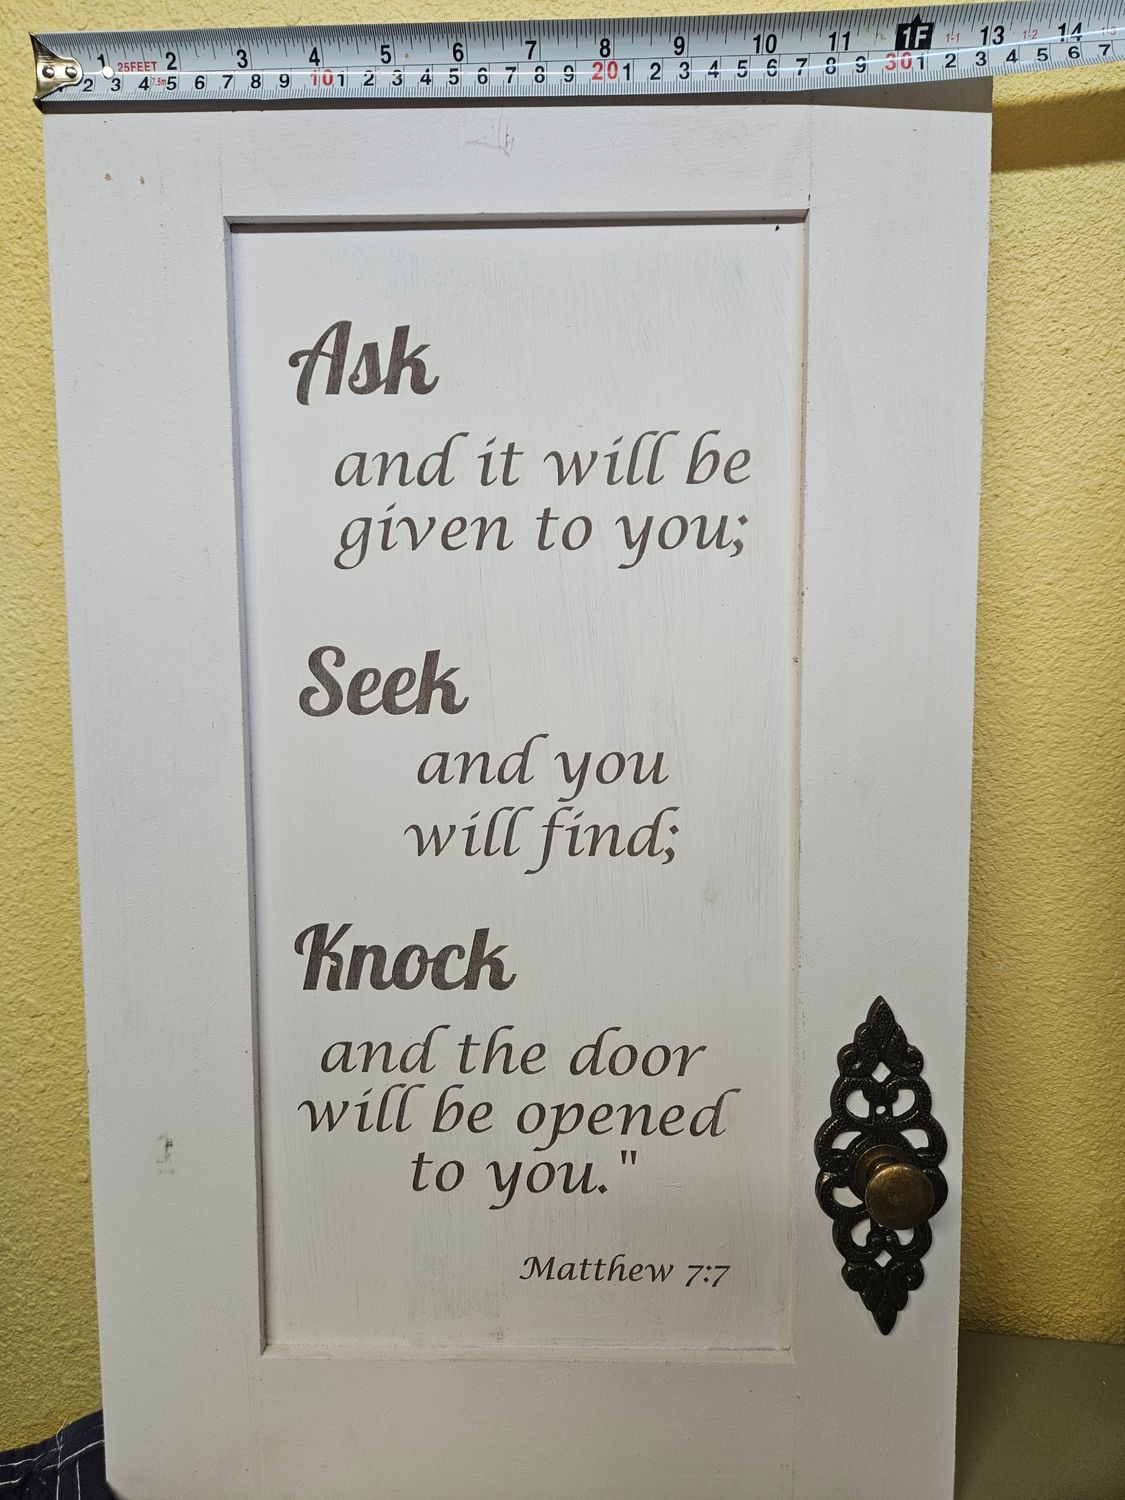 1 2 3 4 5 6 7 8 9 10 11 1F 13 14
25FEET 1-1 1-2
2 3 4 5 6 7 8 9 10 1 2 3 4 5 6 7 8 9 20 1 2 3 4 5 6 7 8 9 30 1 2 3 4 5 6 7
7.5m
Ask
and it will be
given to you;
Seek
and you
will find;
Knock
and the door
will be opened
to you."
Matthew 7:7